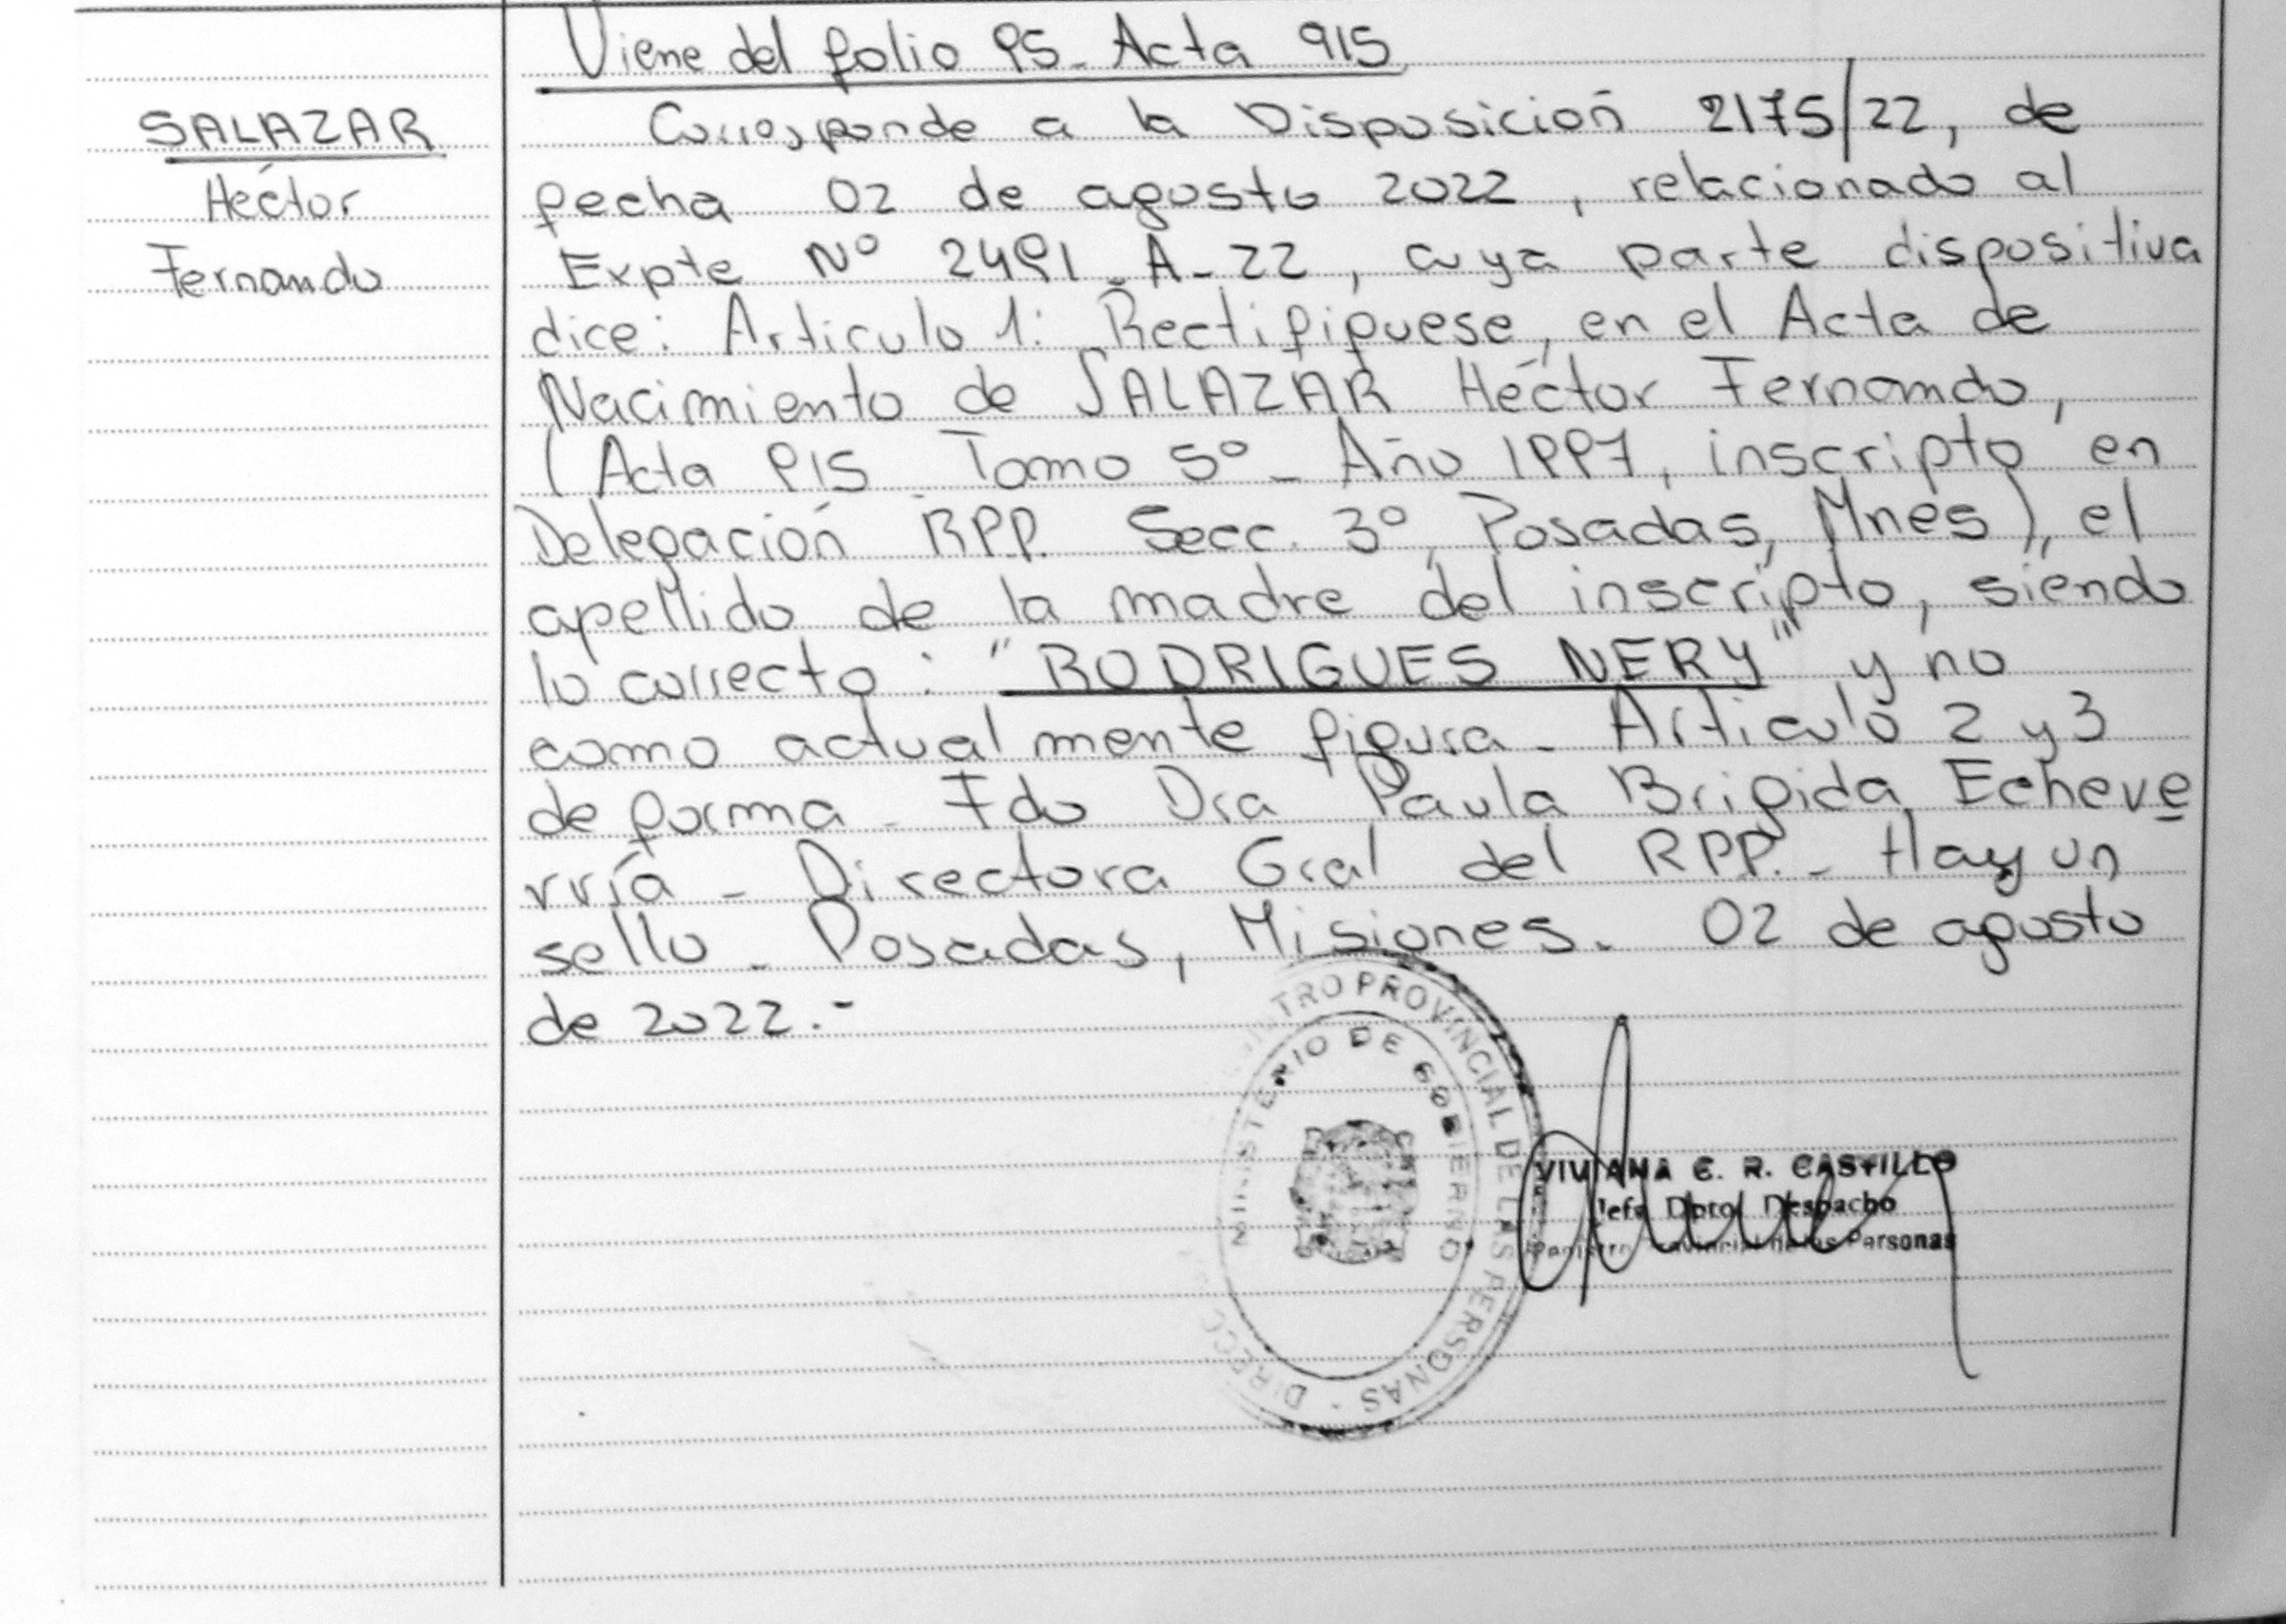 Viene del folio 95. Acta 915
SALAZAR
Héctor
Fernando
Corresponde a la Disposición 2175/22, de
fecha 02 de agosto 2022, relacionado al
Expte Nº 2491-A-22, cuya parte dispositiva
dice: Artículo 1: Rectifíquese, en el Acta de
Nacimiento de SALAZAR Héctor Fernando,
(Acta 915 - Tomo 5º - Año 1997, inscripto en
Delegación RPP. Secc. 3º, Posadas, Mnes), el
apellido de la madre del inscripto, siendo
lo correcto: "RODRIGUES NERY" y no
como actualmente figura - Articulo 2 y 3
de forma - Fdo Dra Paula Brigida Echeve
rría - Directora Gral del RPP. - Hay un
sello - Posadas, Misiones. 02 de agosto
de 2022.-
TRO PROVINCIAL DE LAS PERSONAS - DIRECC
MINISTERIO DE GOBIERNO
VIVIANA E. R. CASTILLO
Jefe Dpto. Despacho
Personas